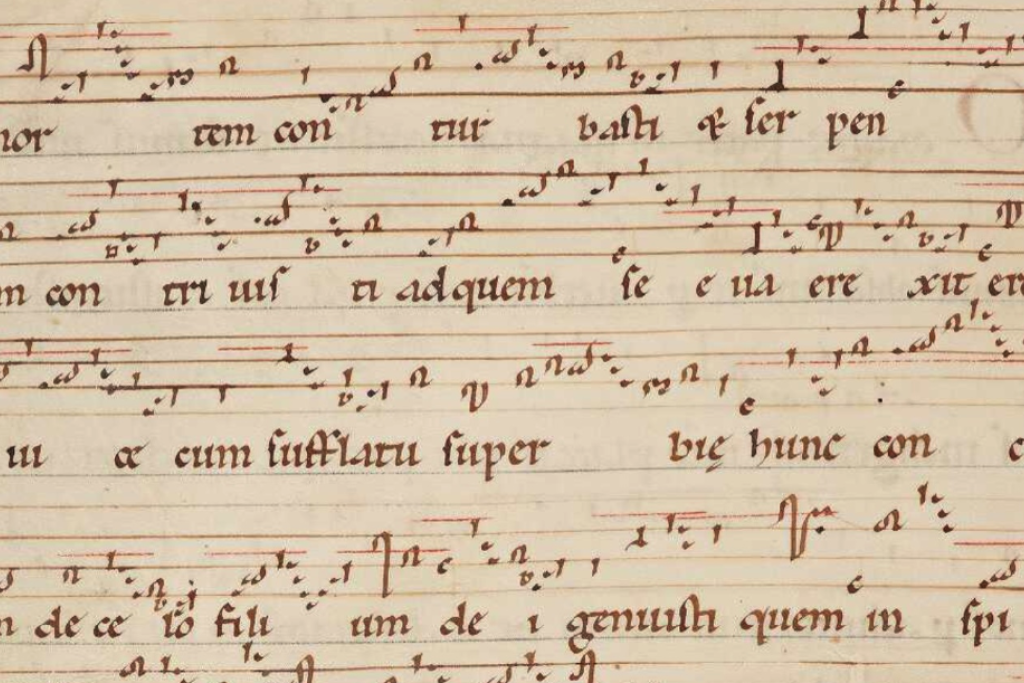 mor tem con tur basti & ser pen
m con tri uis ti ad quem se e ua ere xit ere
ui ce cum sufflatu super bię hunc con c
n de ce lo fili um de i genuisti quem in spi